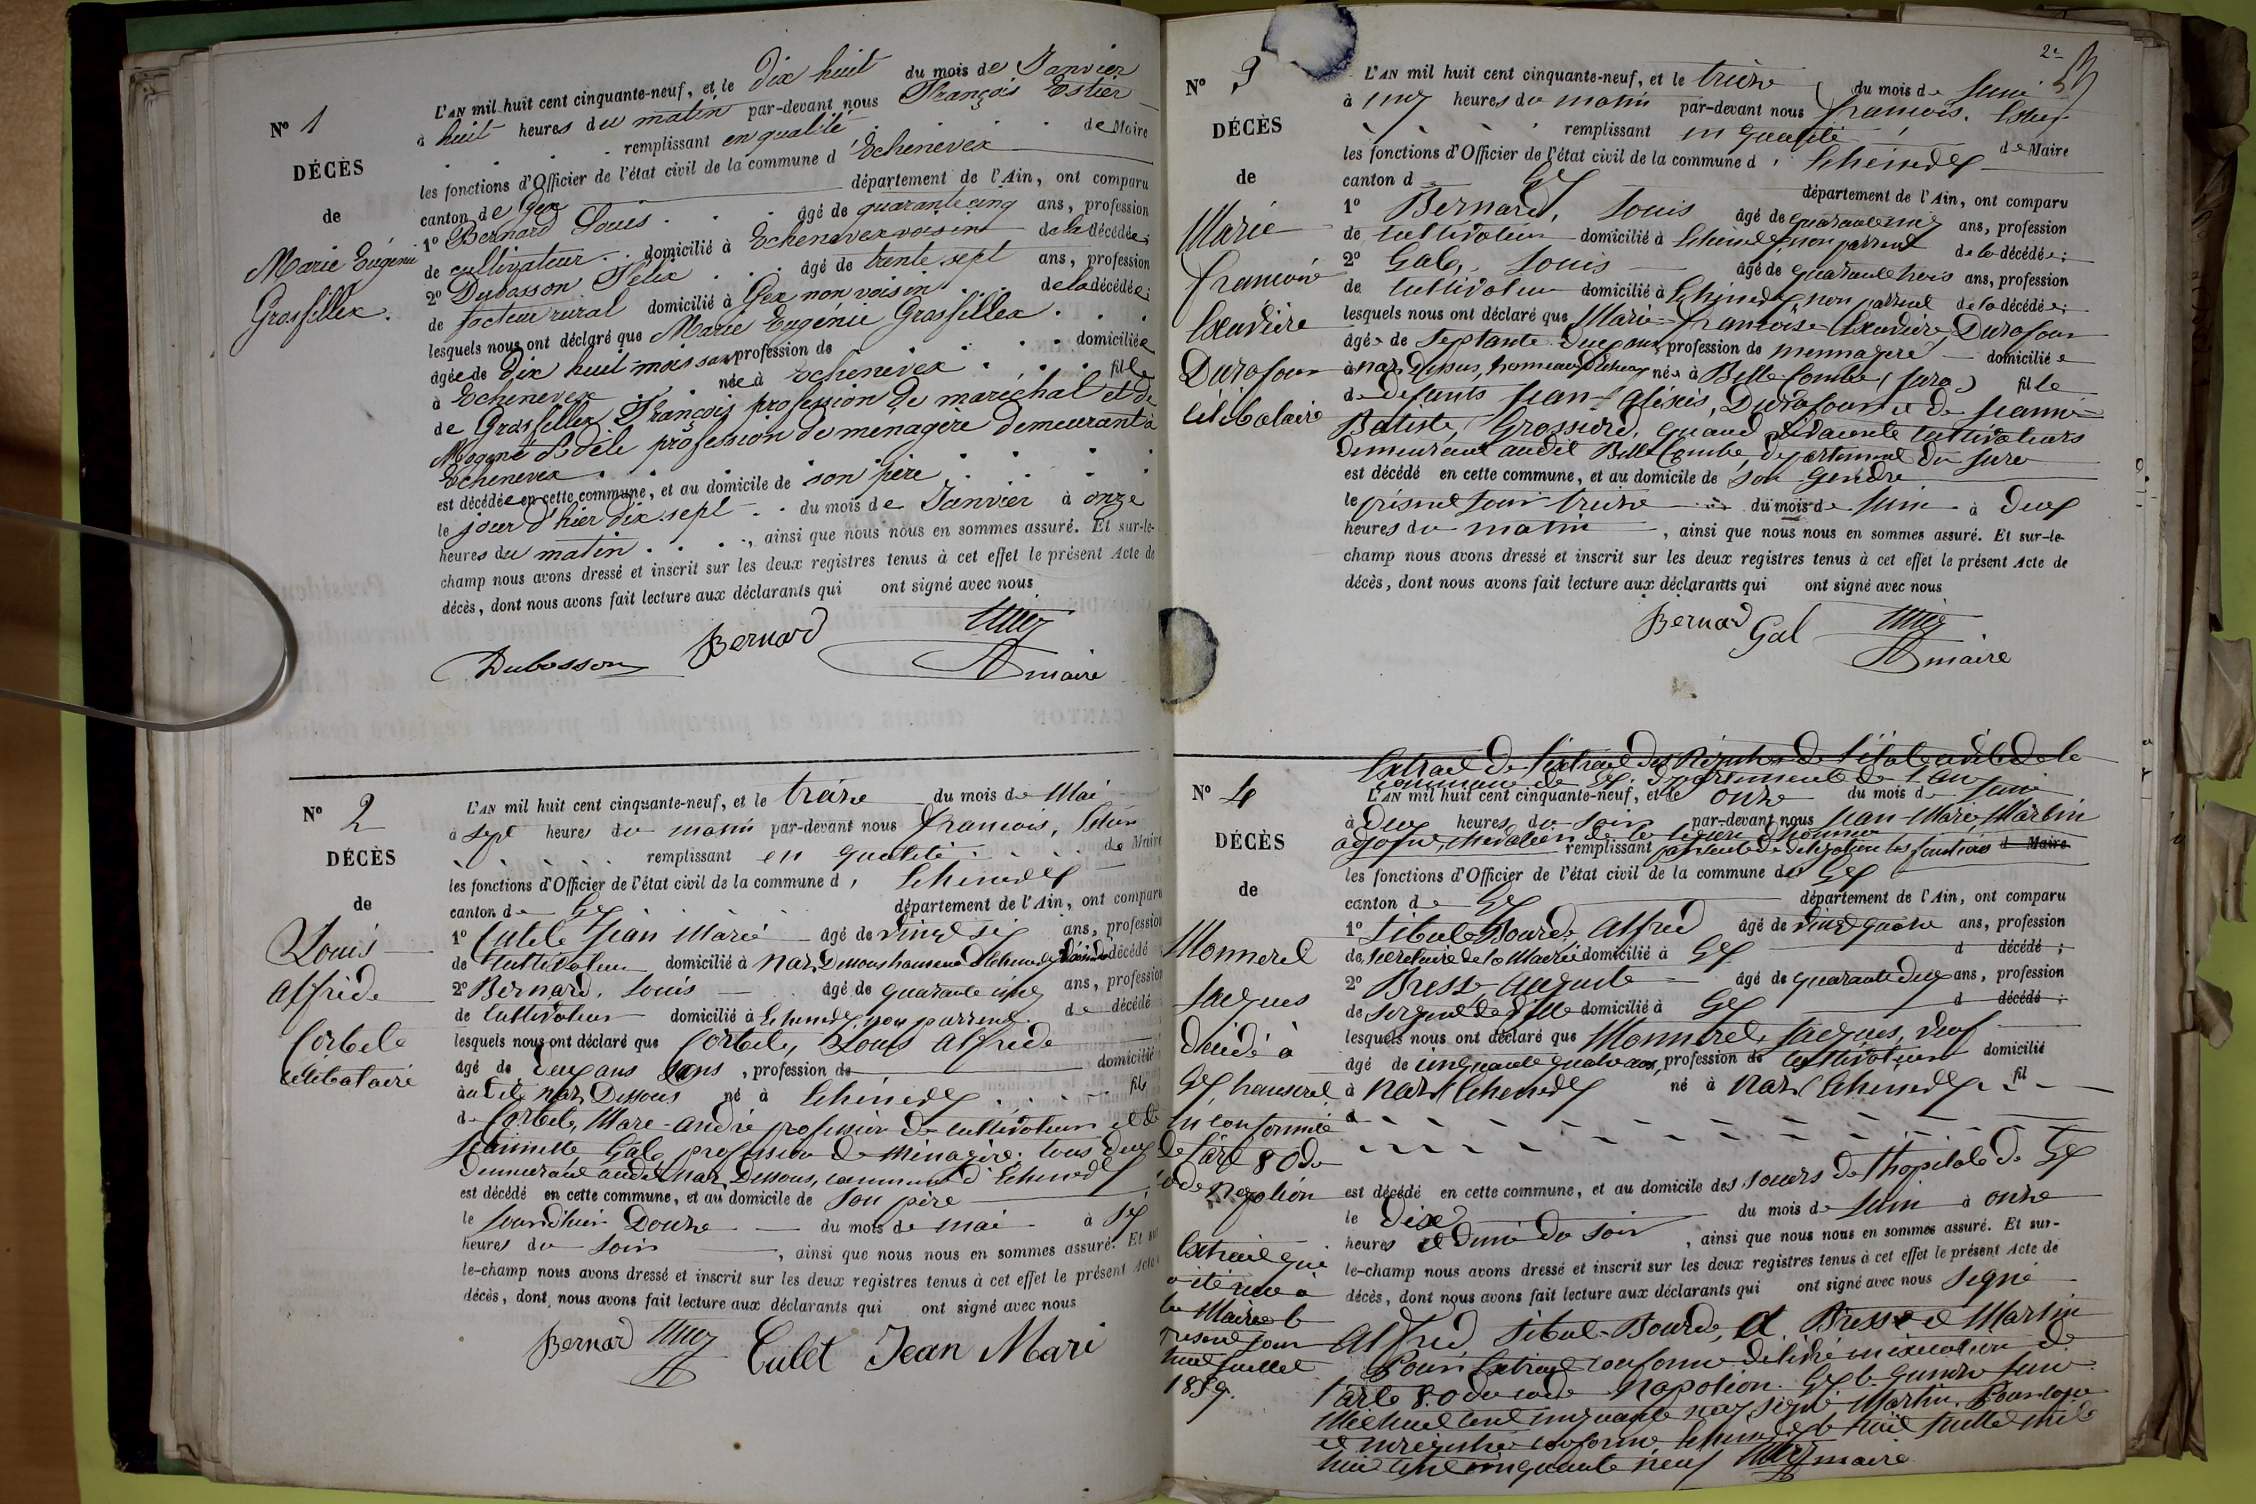 N° 1
DÉCÈS
de
Marie Eugénie
Grosfillex.
L'AN mil huit cent cinquante-neuf, et le dix huit du mois de Janvier
à huit heures du matin par-devant nous François Estier
remplissant en qualité de Maire
les fonctions d'Officier de l'état civil de la commune d'Echenevex
canton de Gex département de l'Ain, ont comparu
1° Bernard Louis âgé de quarante cinq ans, profession
de cultivateur domicilié à Echenevex voisin de la décédée;
2° Dubosson Félix âgé de trente sept ans, profession
de facteur rural domicilié à Gex non voisin de la décédée;
lesquels nous ont déclaré que Marie Eugénie Grosfillex
âgée de dix huit mois sans profession de domiciliée
à Echenevex née à Echenevex fille
de Grosfillex François profession de maréchal et de
Adèle profession de ménagère demeurant à
Echenevex
est décédée en cette commune, et au domicile de son père
le jour d'hier dix sept du mois de Janvier à onze
heures du matin, ainsi que nous nous en sommes assuré. Et sur-le-
champ nous avons dressé et inscrit sur les deux registres tenus à cet effet le présent Acte de
décès, dont nous avons fait lecture aux déclarants qui ont signé avec nous
Dubosson Bernard maire
N° 2
DÉCÈS
de
Louis
Alfrède
Cortet
célibataire
L'AN mil huit cent cinquante-neuf, et le treize du mois de Mai
à sept heures du matin par-devant nous francois,
remplissant en qualité de Maire
les fonctions d'Officier de l'état civil de la commune d' Echenevex
canton de Gex département de l'Ain, ont comparu
1° Cutet Jean Marie âgé de vingt six ans, profession
de cultivateur domicilié à naz Dessous hameau d'Echenevex décédé
2° Bernard, Louis âgé de quarante cinq ans, profession
de cultivateur domicilié à Echenevex, non parrent de décédé
lesquels nous ont déclaré que Cortet, Louis Alfrède
âgé de deux ans sans, profession de domicilié
audit naz Dessous né à Echenevex fils
de Cortet, Marc-andré profession de cultivateur et de
Jeannette Gal, profession de ménagère tous deux
demeurant audit naz Dessous, commune d'Echenevex
est décédé en cette commune, et au domicile de son père
le jourd'hier Douze du mois de mai à six
heures du soir, ainsi que nous nous en sommes assuré. Et sur
le-champ nous avons dressé et inscrit sur les deux registres tenus à cet effet le présent Acte
décès, dont nous avons fait lecture aux déclarants qui ont signé avec nous
Bernard Cutet Jean Mari
2e
N° 3
DÉCÈS
de
Marie
francoise
Durafour
célibataire
L'AN mil huit cent cinquante-neuf, et le treize du mois de Juin
à cinq heures du matin par-devant nous francois.
remplissant en qualité de Maire
les fonctions d'Officier de l'état civil de la commune d' Echenevex
canton d Gex département de l'Ain, ont comparu
1° Bernard, Louis âgé de quarante cinq ans, profession
de cultivateur domicilié à Echenevex, non parrent de la décédée;
2° Gal, Louis âgé de quarante trois ans, profession
de cultivateur domicilié à Echenevex, non parrent de la décédée;
lesquels nous ont déclaré que Marie-francoise Durafour
âgée de septante deux ans, profession de mennagere domiciliée
à naz Dessus, née à Belle Combe (Jura) fille
de defunts Jean-Alexis, Durafour et de Jeanne-
Batiste, Grossiord, quand vivante cultivateurs
demeurant audit Belle Combe, departement du Jura
est décédé en cette commune, et au domicile de son Gendre
le présent jour treize du mois de Juin à deux
heures du matin, ainsi que nous nous en sommes assuré. Et sur-le-
champ nous avons dressé et inscrit sur les deux registres tenus à cet effet le présent Acte de
décès, dont nous avons fait lecture aux déclarants qui ont signé avec nous
Bernard Gal maire
N° 4
DÉCÈS
de
Monnerel
Jacques
décédé à
Gex, transcrit
en conformité
de l'art 80 du
code Napoléon
Extrait qui
a été remis à
la Mairie le
présent jour
huit Juillet
1859.
Extrait de l'extrait des Registres de l'état civil de la
commune de Gex, departement de l'ain
L'AN mil huit cent cinquante-neuf, et le onze du mois de Juin
à deux heures du soir par-devant nous Jean Marie, Martin
adjoint, chevalier de la légion d'honneur
remplissant par suite de délégation les fonctions d Maire
les fonctions d'Officier de l'état civil de la commune de Gex
canton de Gex département de l'Ain, ont comparu
1° Sibuet-Bourde Alfred âgé de vingt quatre ans, profession
de secretaire de la Mairie domicilié à Gex d décédé;
2° Bresse auguste âgé de quarante deux ans, profession
de sergent de ville domicilié à Gex d décédé;
lesquels nous ont déclaré que Monnerel, Jacques, veuf
âgé de cinquante quatre ans, profession de cultivateur domicilié
à naz Echenevex né à naz Echenevex fil
d
est décédé en cette commune, et au domicile des soeurs de l'hopitale de Gex
le dix du mois de Juin à onze
heures et demi du soir, ainsi que nous nous en sommes assuré. Et sur-
le-champ nous avons dressé et inscrit sur les deux registres tenus à cet effet le présent Acte de
décès, dont nous avons fait lecture aux déclarants qui ont signé avec nous signé
Alfred Sibuet-Bourde, A Bresse et Martin
Pour Extrait conforme délivré en exécution de
l'arte 80 du code Napoléon. Gex le quinze Juin
mil huit cent cinquante neuf, signé Martin, Pour copie
et enregistré conforme Echenevex le huit Juillet mil
huit cent cinquante neuf maire